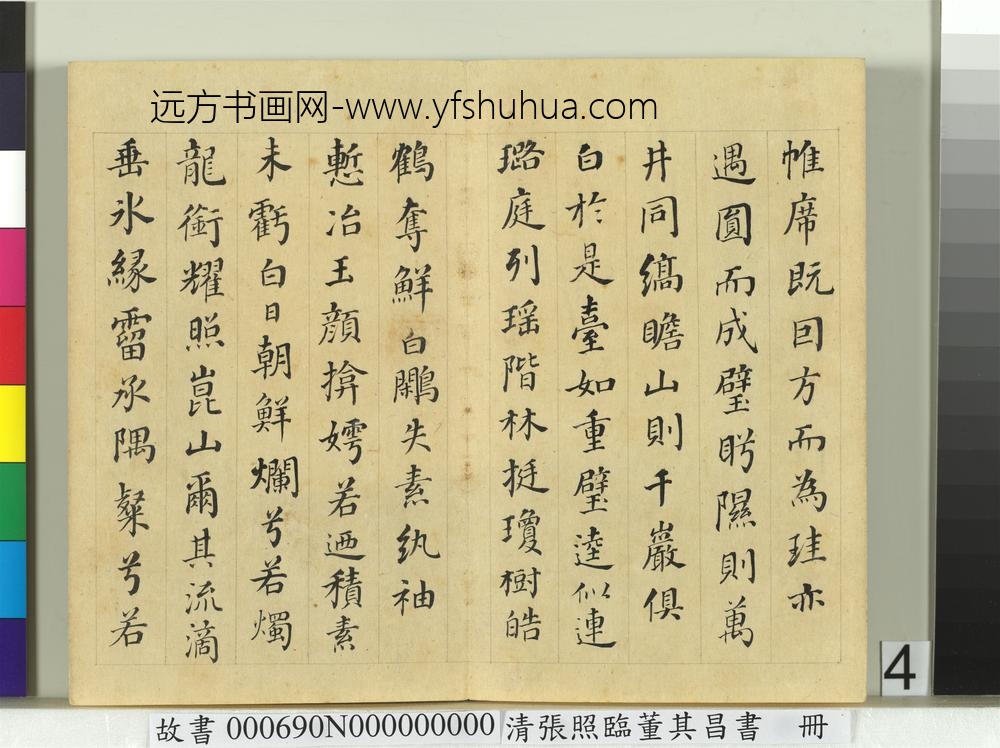 远方书画网-www.yfshuhua.com
帷席既囙方而為珪亦
遇圓而成璧眄隰則萬
井同縞瞻山則千巖俱
白於是臺如重璧逵似連
璐庭列瑶階林挺瓊樹皓
鶴奪鮮白鷳失素紈袖
慙冶玉顔揜嫮若迺積素
未虧白日朝鮮爛兮若燭
龍銜耀照崑山爾其流滴
垂氷緣霤承隅粲兮若
4
故書 000690N000000000 清張照臨董其昌書 冊